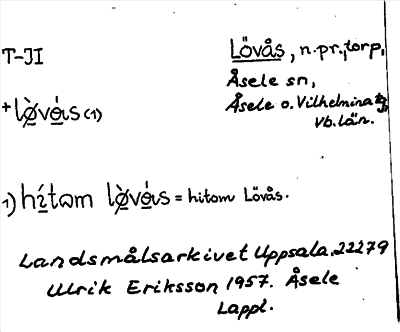 T-JI
Lövås, n.pr., torp,
Åsele sn,
Åsele o. Vilhelmina tg,
vb. län.
+lø̀vá̱ɩs (1)
1) hí̱tɷm lø̀vá̱ɩs = hitom Lövås.
Landsmålsarkivet Uppsala. 22279
Ulrik Eriksson 1957. Åsele
Lappl.